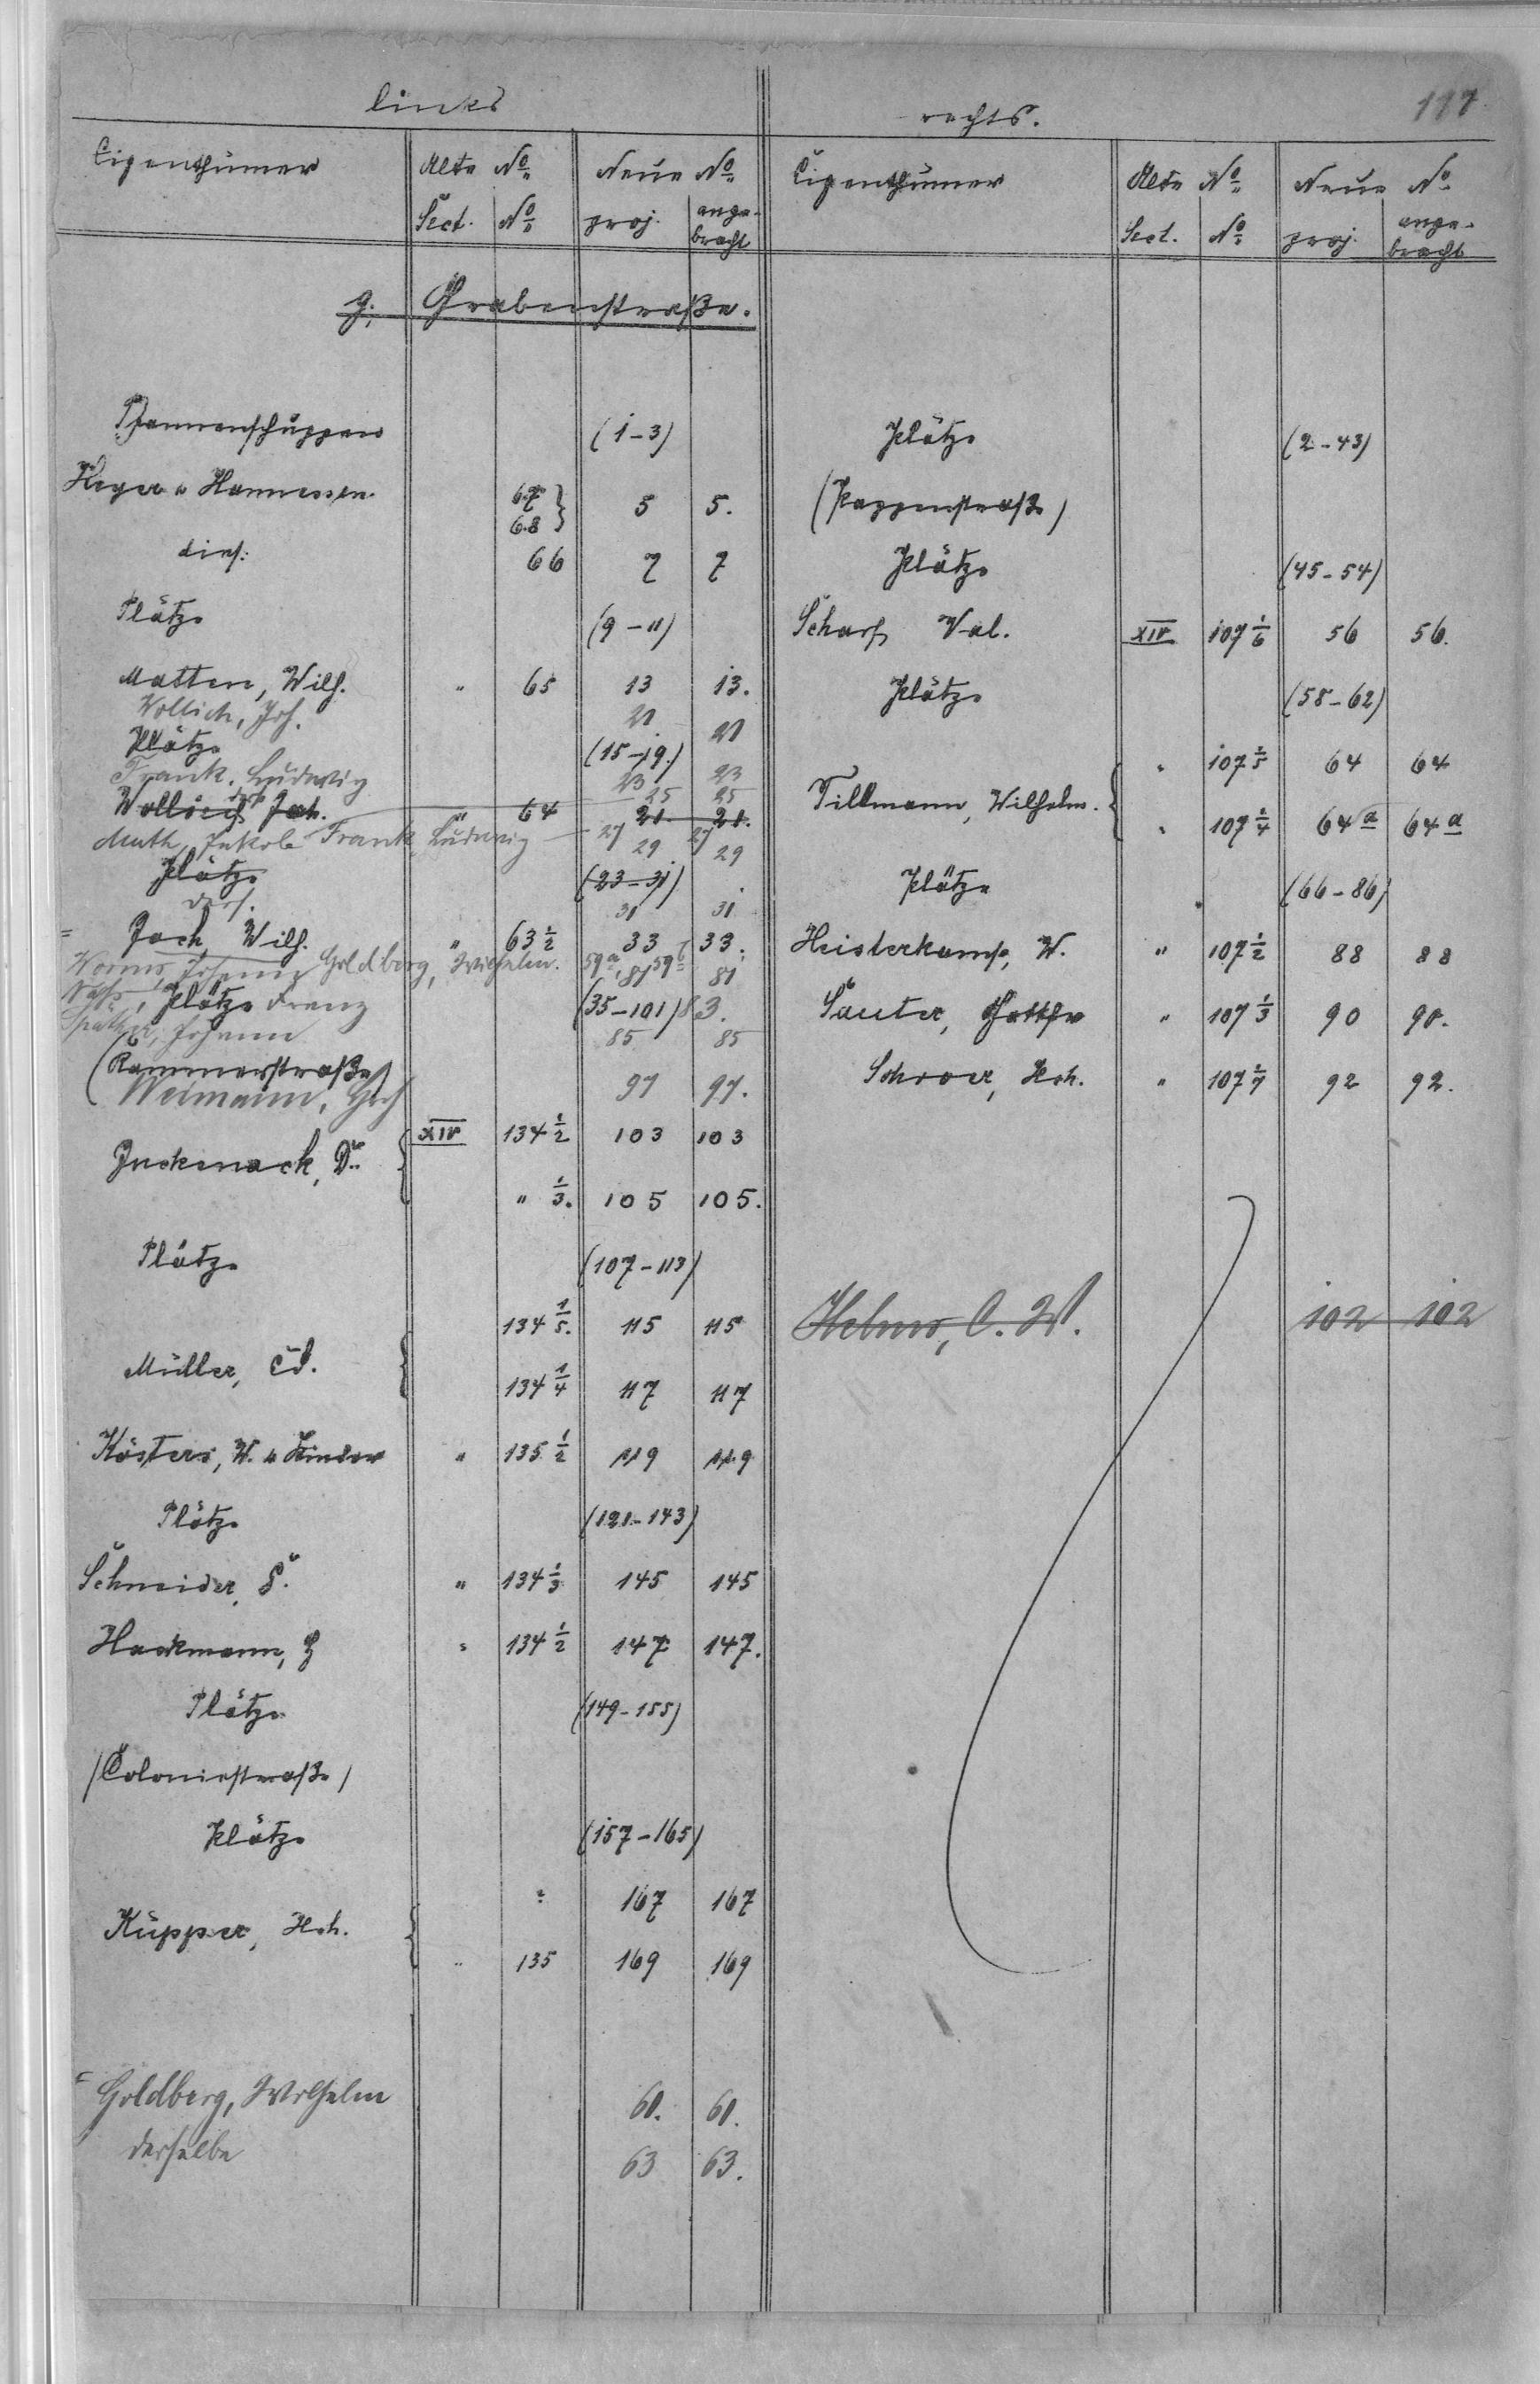 117
links
rechts.
Eigenthümer Alte No. Neue No. Eigenthümer Alte No. Neue No.
Sect. No. proj. ange-bracht Sect. No. proj. ange-bracht
g. Grabenstraße.
(1-3)
Keger u Hannessen. 67 68 } 5 5.
dies: 66 7 7
Plätze (9-11)
Matten, Wilh. " 65 13 13.
Wollich, Joh. 21 21
Plätze (15-19.)
Frank, Ludwig 23 23
ders. 25 25
Wollich Joh. " 64 21. 21.
Frank, Ludwig 27 27
Muth, Jakob 29 29
Plätze (23-31)
ders. 31 31
= Joch, Wilh. " 63 1/2 33 33.
Goldberg, Wilhelm. 59a, 59b
Worms, Johann 81 81
Plätze (35-101)
Franz 83.
Später, Johann 85 85
(Kammerstraße)
Weimann, Hch 97 97.
Juckenack, Dr. { XIV 134 1/2 103 103
" 1/3. 105 105.
Plätze (107-113)
Müller, Ed. { 134 1/5. 115 115
134 1/4 117 117
Kösters, W. u Kinder " 135 1/2 119 119
Plätze (121-143)
Schneider, F. " 134 1/3 145 145
Hackmann, H " 134 1/2 147 147.
Plätze (149-155)
(Coloniestraße)
Plätze (157-165)
Küpper, Hch. { " 167 167
" 135 169 169
Goldberg, Wilhelm 61. 61.
derselbe 63 63.
Plätze (2-43)
(Pappenstraße)
Plätze (45-54)
Scharf Val. XIV 107 1/6 56 56.
Plätze (58-62)
Tillmann, Wilhelm. { " 107 1/5 64 64
" 107 1/4 64a 64a
Plätze (66-86)
Heisterkamp, W. " 107 1/2 88 88
Sauter, Gotthr " 107 1/3 90 90.
Schroer, Hch. " 107 1/7 92 92.
Helmo, C. W. 102 102